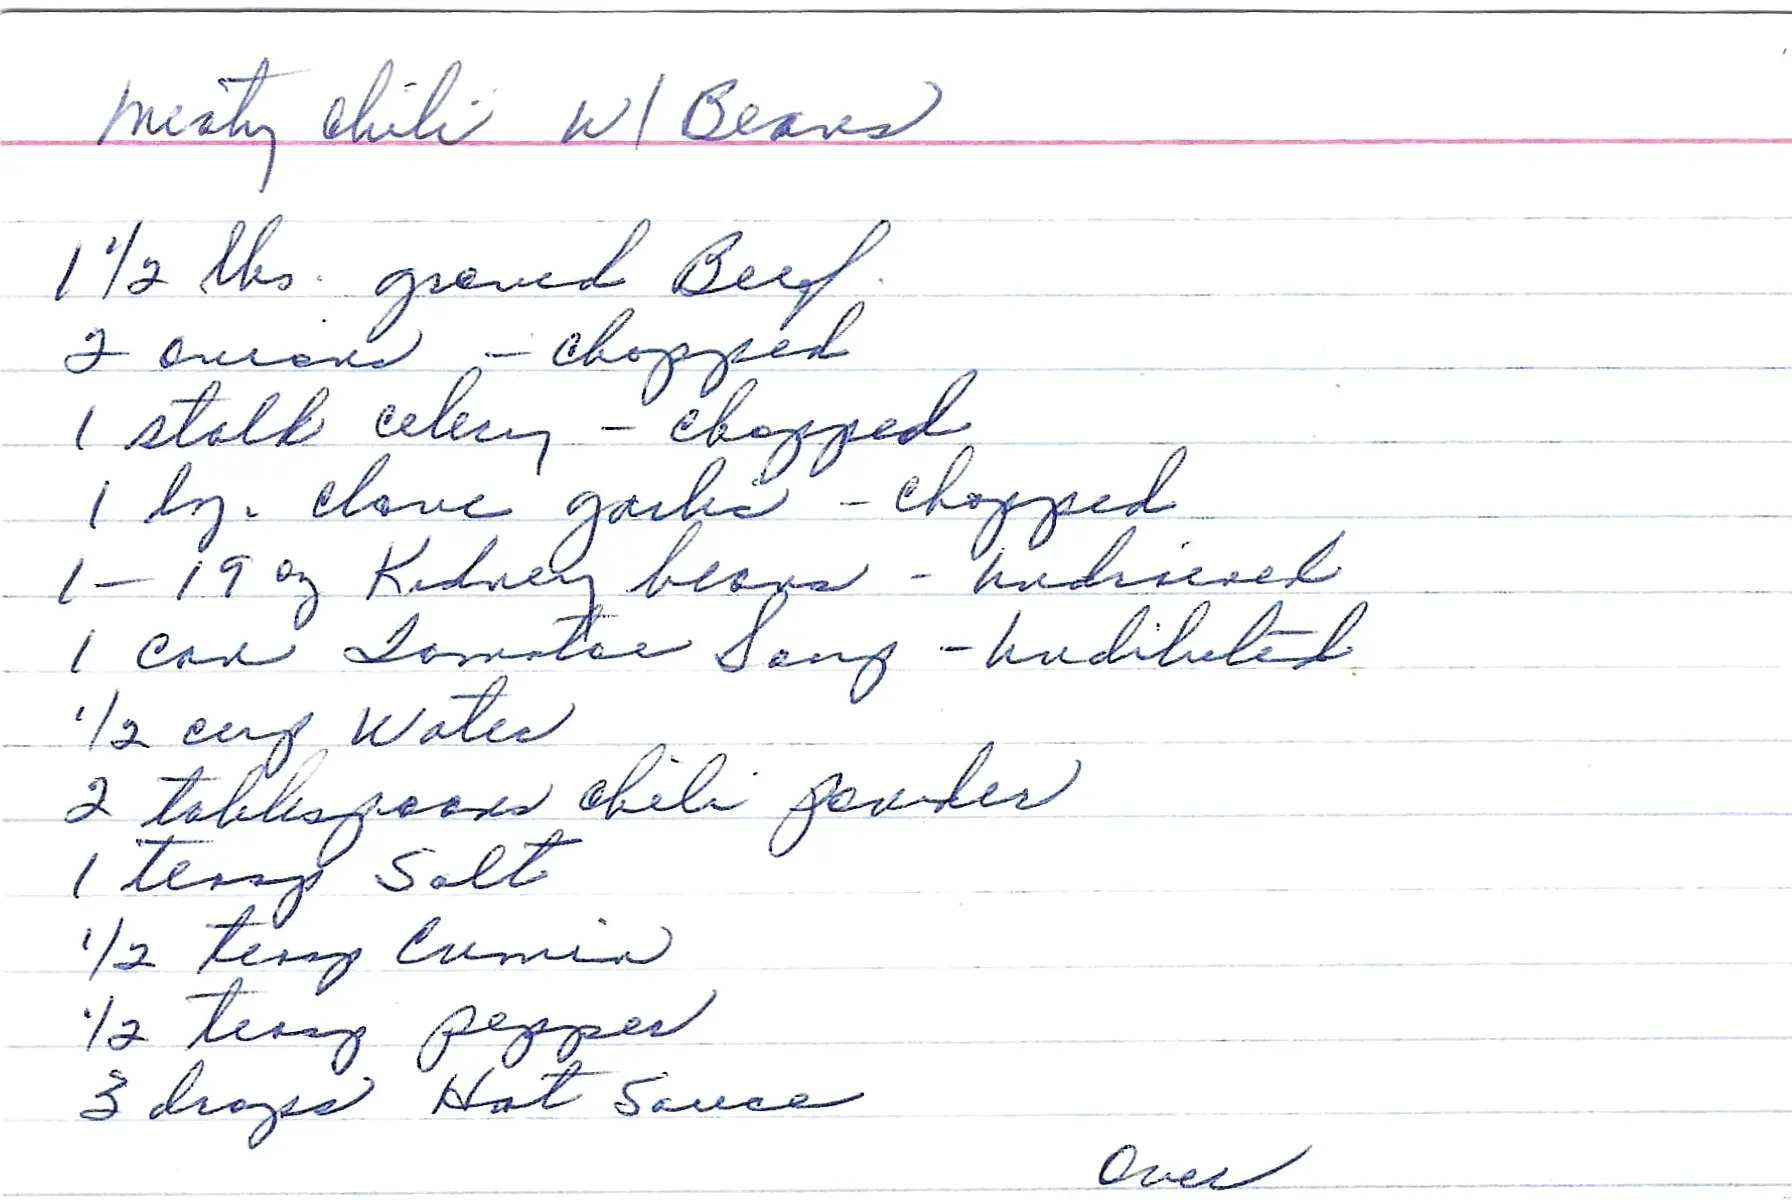 Meaty Chili W/ Beans
1 1/2 lbs. ground Beef
2 onions - chopped
1 stalk celery - chopped
1 lrg. clove garlic - chopped
1 - 19 oz Kidney beans - undrained
1 can Tomatoe Soup - undiluted
1/2 cup Water
2 tablespoons chili powder
1 teasp Salt
1/2 teasp Cumin
1/2 teasp pepper
3 drops Hot Sauce
Over